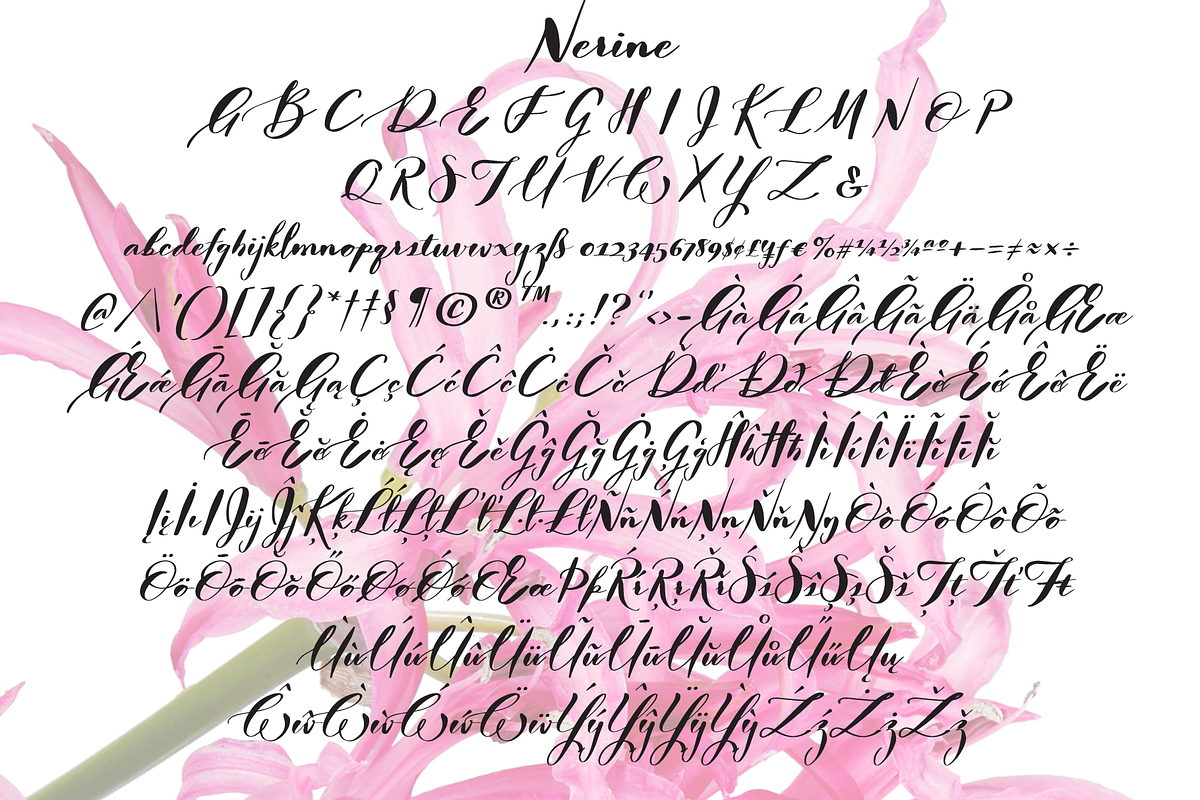 Nerine
A B C D E F G H I J K L M N O P
Q R S T U V W X Y Z &
abcdefghijklmnopqrstuvwxyzß 0123456789$¢£¥ƒ€%#¼½¾ªº+−=≠≈×÷
@/\'()[]{}*†‡§¶©®™.,:;!?'"‹›-ÀàÁáÂâÃãÄäÅåÆæ
ǼǽĀāĂăĄąÇçĆćĈĉĊċČčĎďÐðĐđÈèÉéÊêËë
ĒēĔĕĖėĘęĚěĜĝĞğĠġĢģĤĥĦħÌìÍíÎîÏïĨĩĪīĬĭ
ĮįİıIJijĴĵĶķĹĺĻļĽľĿŀŁłÑñŃńŅņŇňŊŋÒòÓóÔôÕõ
ÖöŌōŎŏŐőØøǾǿŒœÞþŔŕŖŗŘřŚśŜŝŞşŠšŢţŤťŦŧ
ÙùÚúÛûÜüŨũŪūŬŭŮůŰűŲų
ŴŵẀẁẂẃẄẅÝýŶŷŸÿỲỳŹźŻżŽž